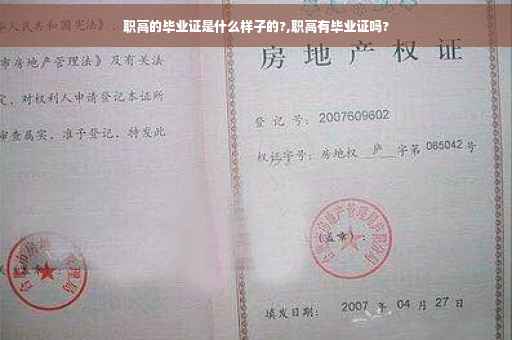 职高的毕业证是什么样子的?,职高有毕业证吗?
人民共和国宪法》、
市房地产管理法》及有关法
定，对权利人申请登记本证所
审查属实，准予登记，特发此
房地产权证
登记号：2007609602
权证字号：房地权 庐 字第 085042 号
(盖章)：
填发日期： 2007 年 04 月 27 日